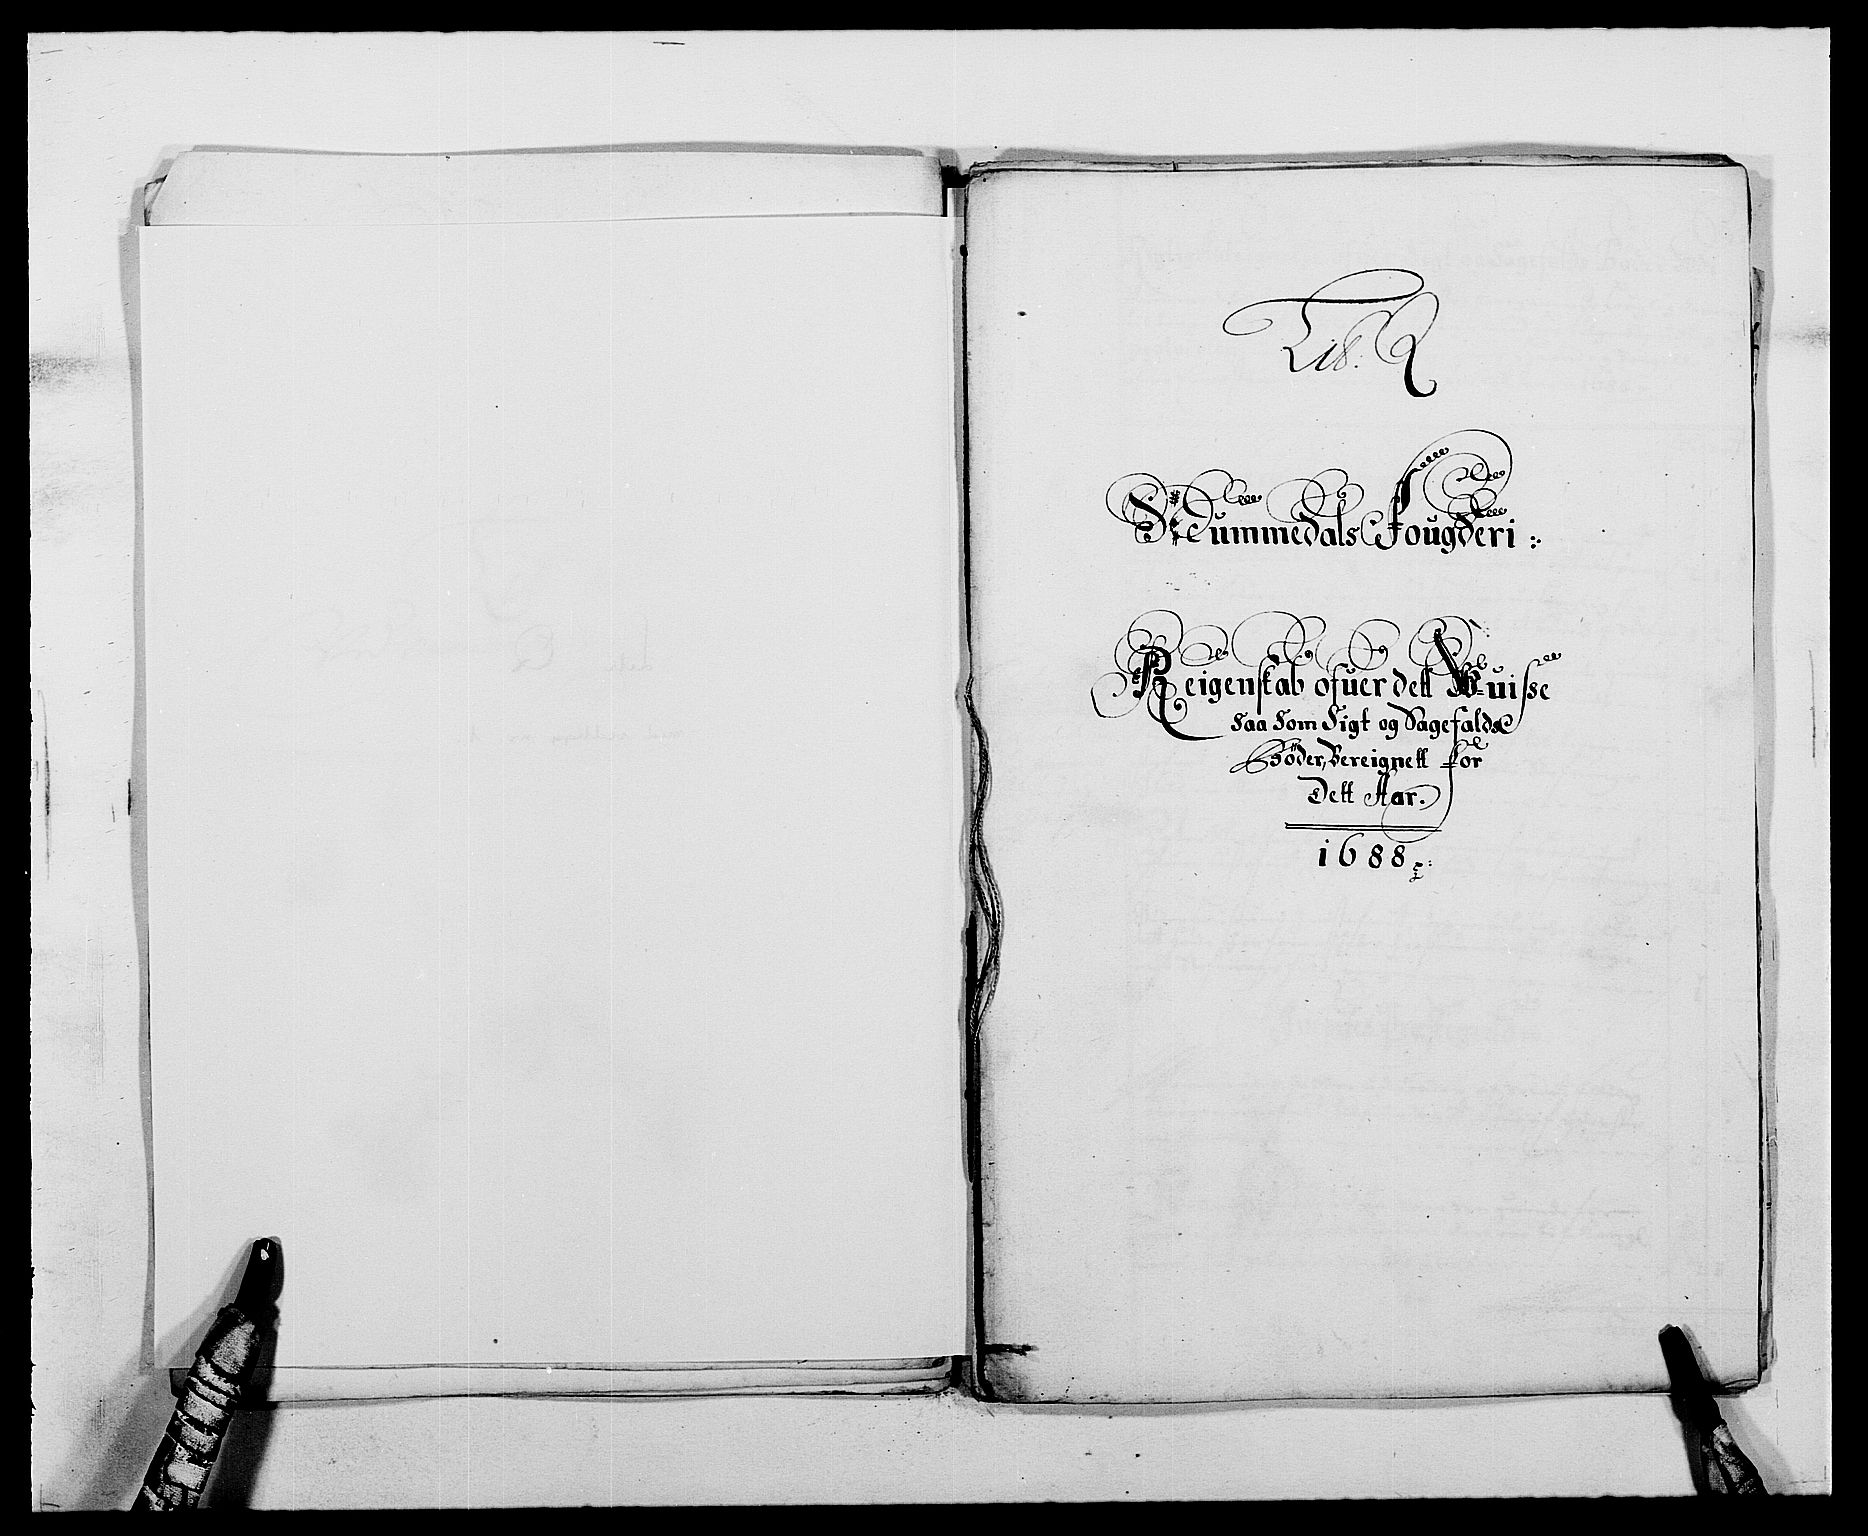 Lit: Q
Nummedals Fougderi
Reigenskab ofuer dett Wuisse
saa Som Sigt og Sagefalds
Böder, Bereignett for
Dett Aar.
1688